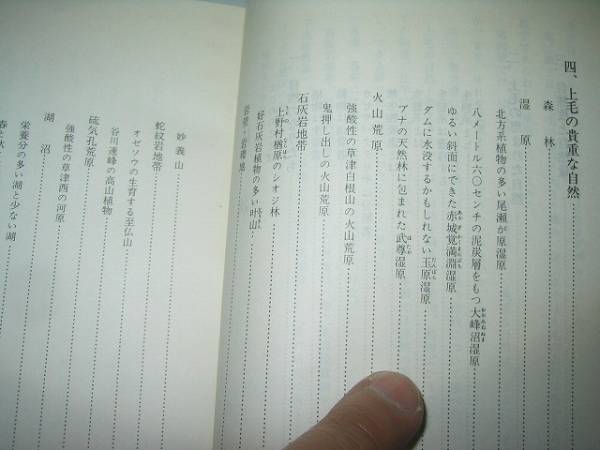 四、上毛の貴重な自然
森林
湿原
北方系植物の多い尾瀬が原湿原
八メートル六〇センチの泥炭層をもつ大峰沼湿原
ゆるい斜面にできた赤城覚満淵湿原
ダムに水没するかもしれない玉原湿原
ブナの天然林に包まれた武尊湿原
火山荒原
強酸性の草津白根山の火山荒原
鬼押し出しの火山荒原
石灰岩地帯
上野村楢原のシオジ林
好石灰岩植物の多い叶山
妙義山
蛇紋岩地帯
オゼソウの生育する至仏山
谷川連峰の高山植物
硫気孔荒原
強酸性の草津西の河原
湖沼
栄養分の多い湖と少ない湖